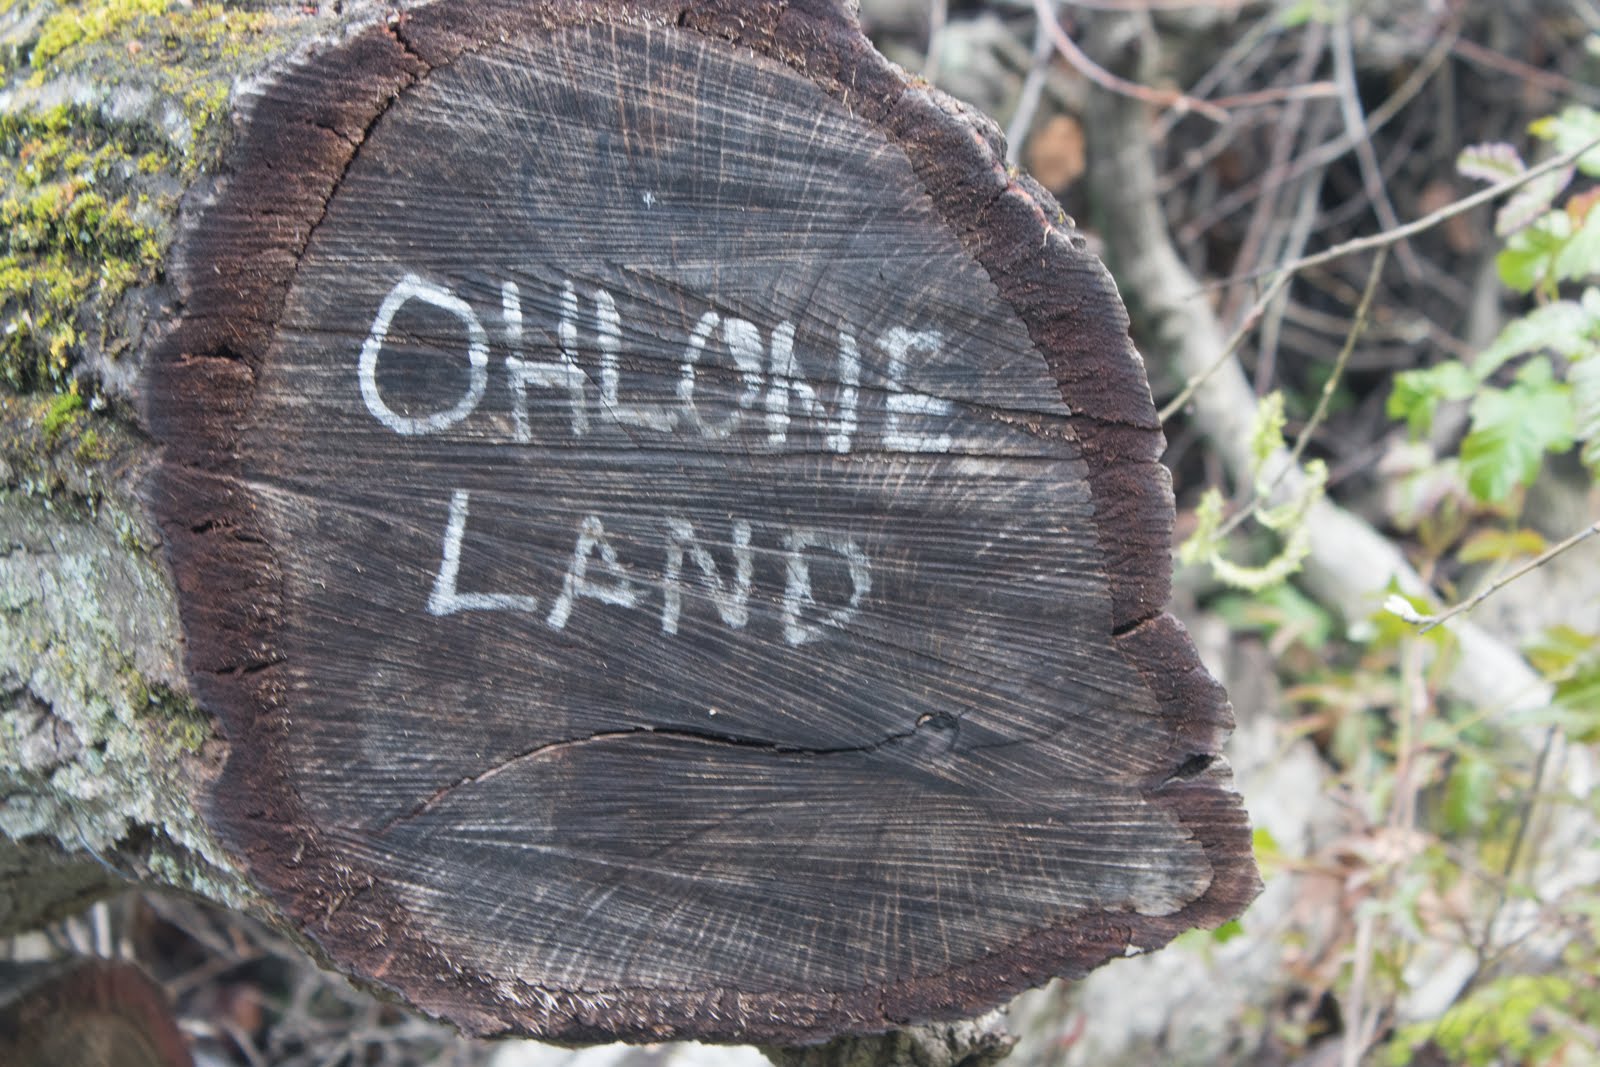 OHLONE
LAND